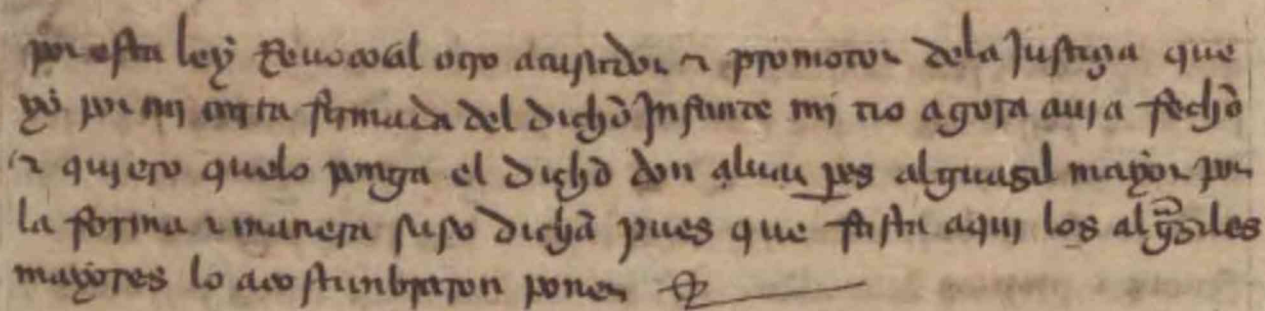 por esta ley Reuoco al otro acusador e promotor dela Justiçia que
yo por mi carta firmada del dicho Infante mi tio agora auja fecho
e qujero quelo ponga el dicho don aluar pes alguasil mayor por
la forma e manera suso dicha pues que fasta aquj los algsiles
mayores lo acostunbraron poner